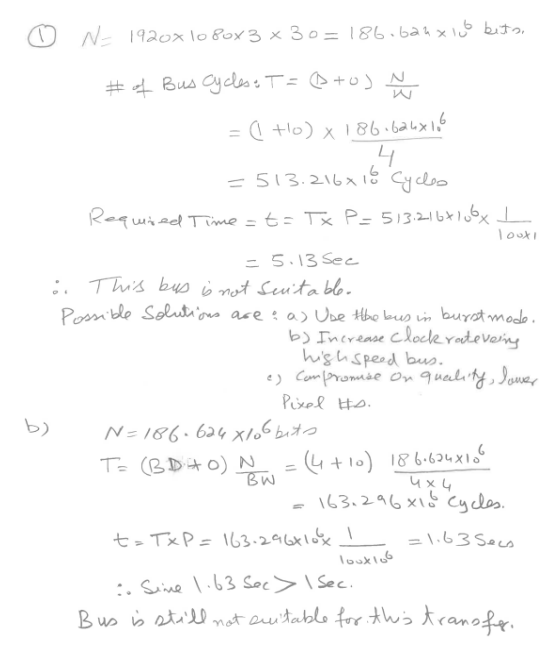 ① N= 1920x1080x3 x 30 = 186.624 x 10^6 bits.
# of Bus Cycles: T = (D+O) N/W
= (1+10) x 186.624x10^6/4
= 513.216x10^6 Cycles
Required Time = t = Tx P = 513.216x10^6x 1/100x1
= 5.13 Sec
∴ This bus is not Suitable.
Possible Solutions are : a) Use the bus in burst mode.
b) Increase Clock rate using
high speed bus.
c) Compromise on quality, lower
Pixel #s.
b) N = 186.624 x10^6 bits
T= (BD+O) N/BW = (4+10) 186.624x10^6/4x4
= 163.296 x10^6 Cycles.
t = TxP = 163.296x10^6x 1/100x10^6 = 1.63 Secs
∴ Sine 1.63 Sec > 1 Sec.
Bus is still not suitable for this transfer.